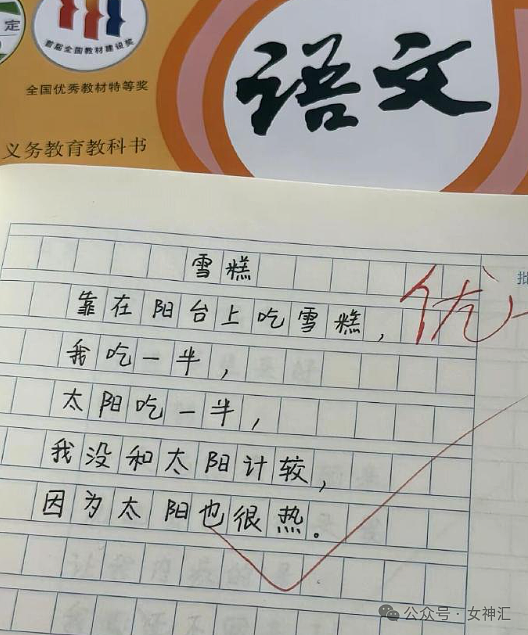 定
首届全国教材建设奖
全国优秀教材特等奖
义务教育教科书
语文
雪糕
靠在阳台上吃雪糕，
我吃一半，
太阳吃一半，
我没和太阳计较，
因为太阳也很热。
优
批
公众号·女神汇